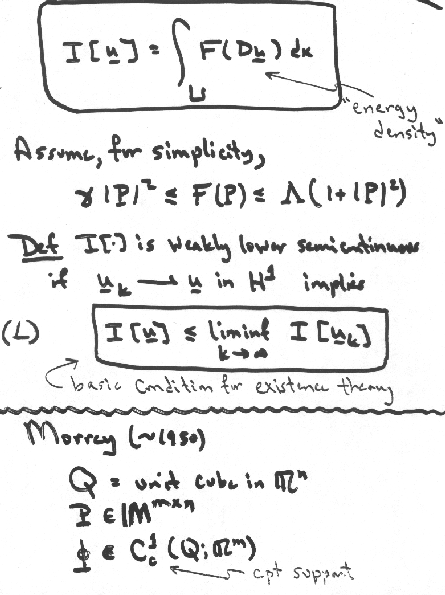 I[u] = ∫_U F(Du) dx
"energy density"
Assume, for simplicity,
γ|P|² ≤ F(P) ≤ Λ(1+|P|²)
Def I[·] is weakly lower semicontinuous
if u_k ⇀ u in H¹ implies
(L) I[u] ≤ liminf_{k→∞} I[u_k]
basic condition for existence theory
Morrey (~1950)
Q = unit cube in ℝⁿ
P ∈ 𝕄^{m×n}
ϕ ∈ C_c^1 (Q; ℝᵐ)
cpt support